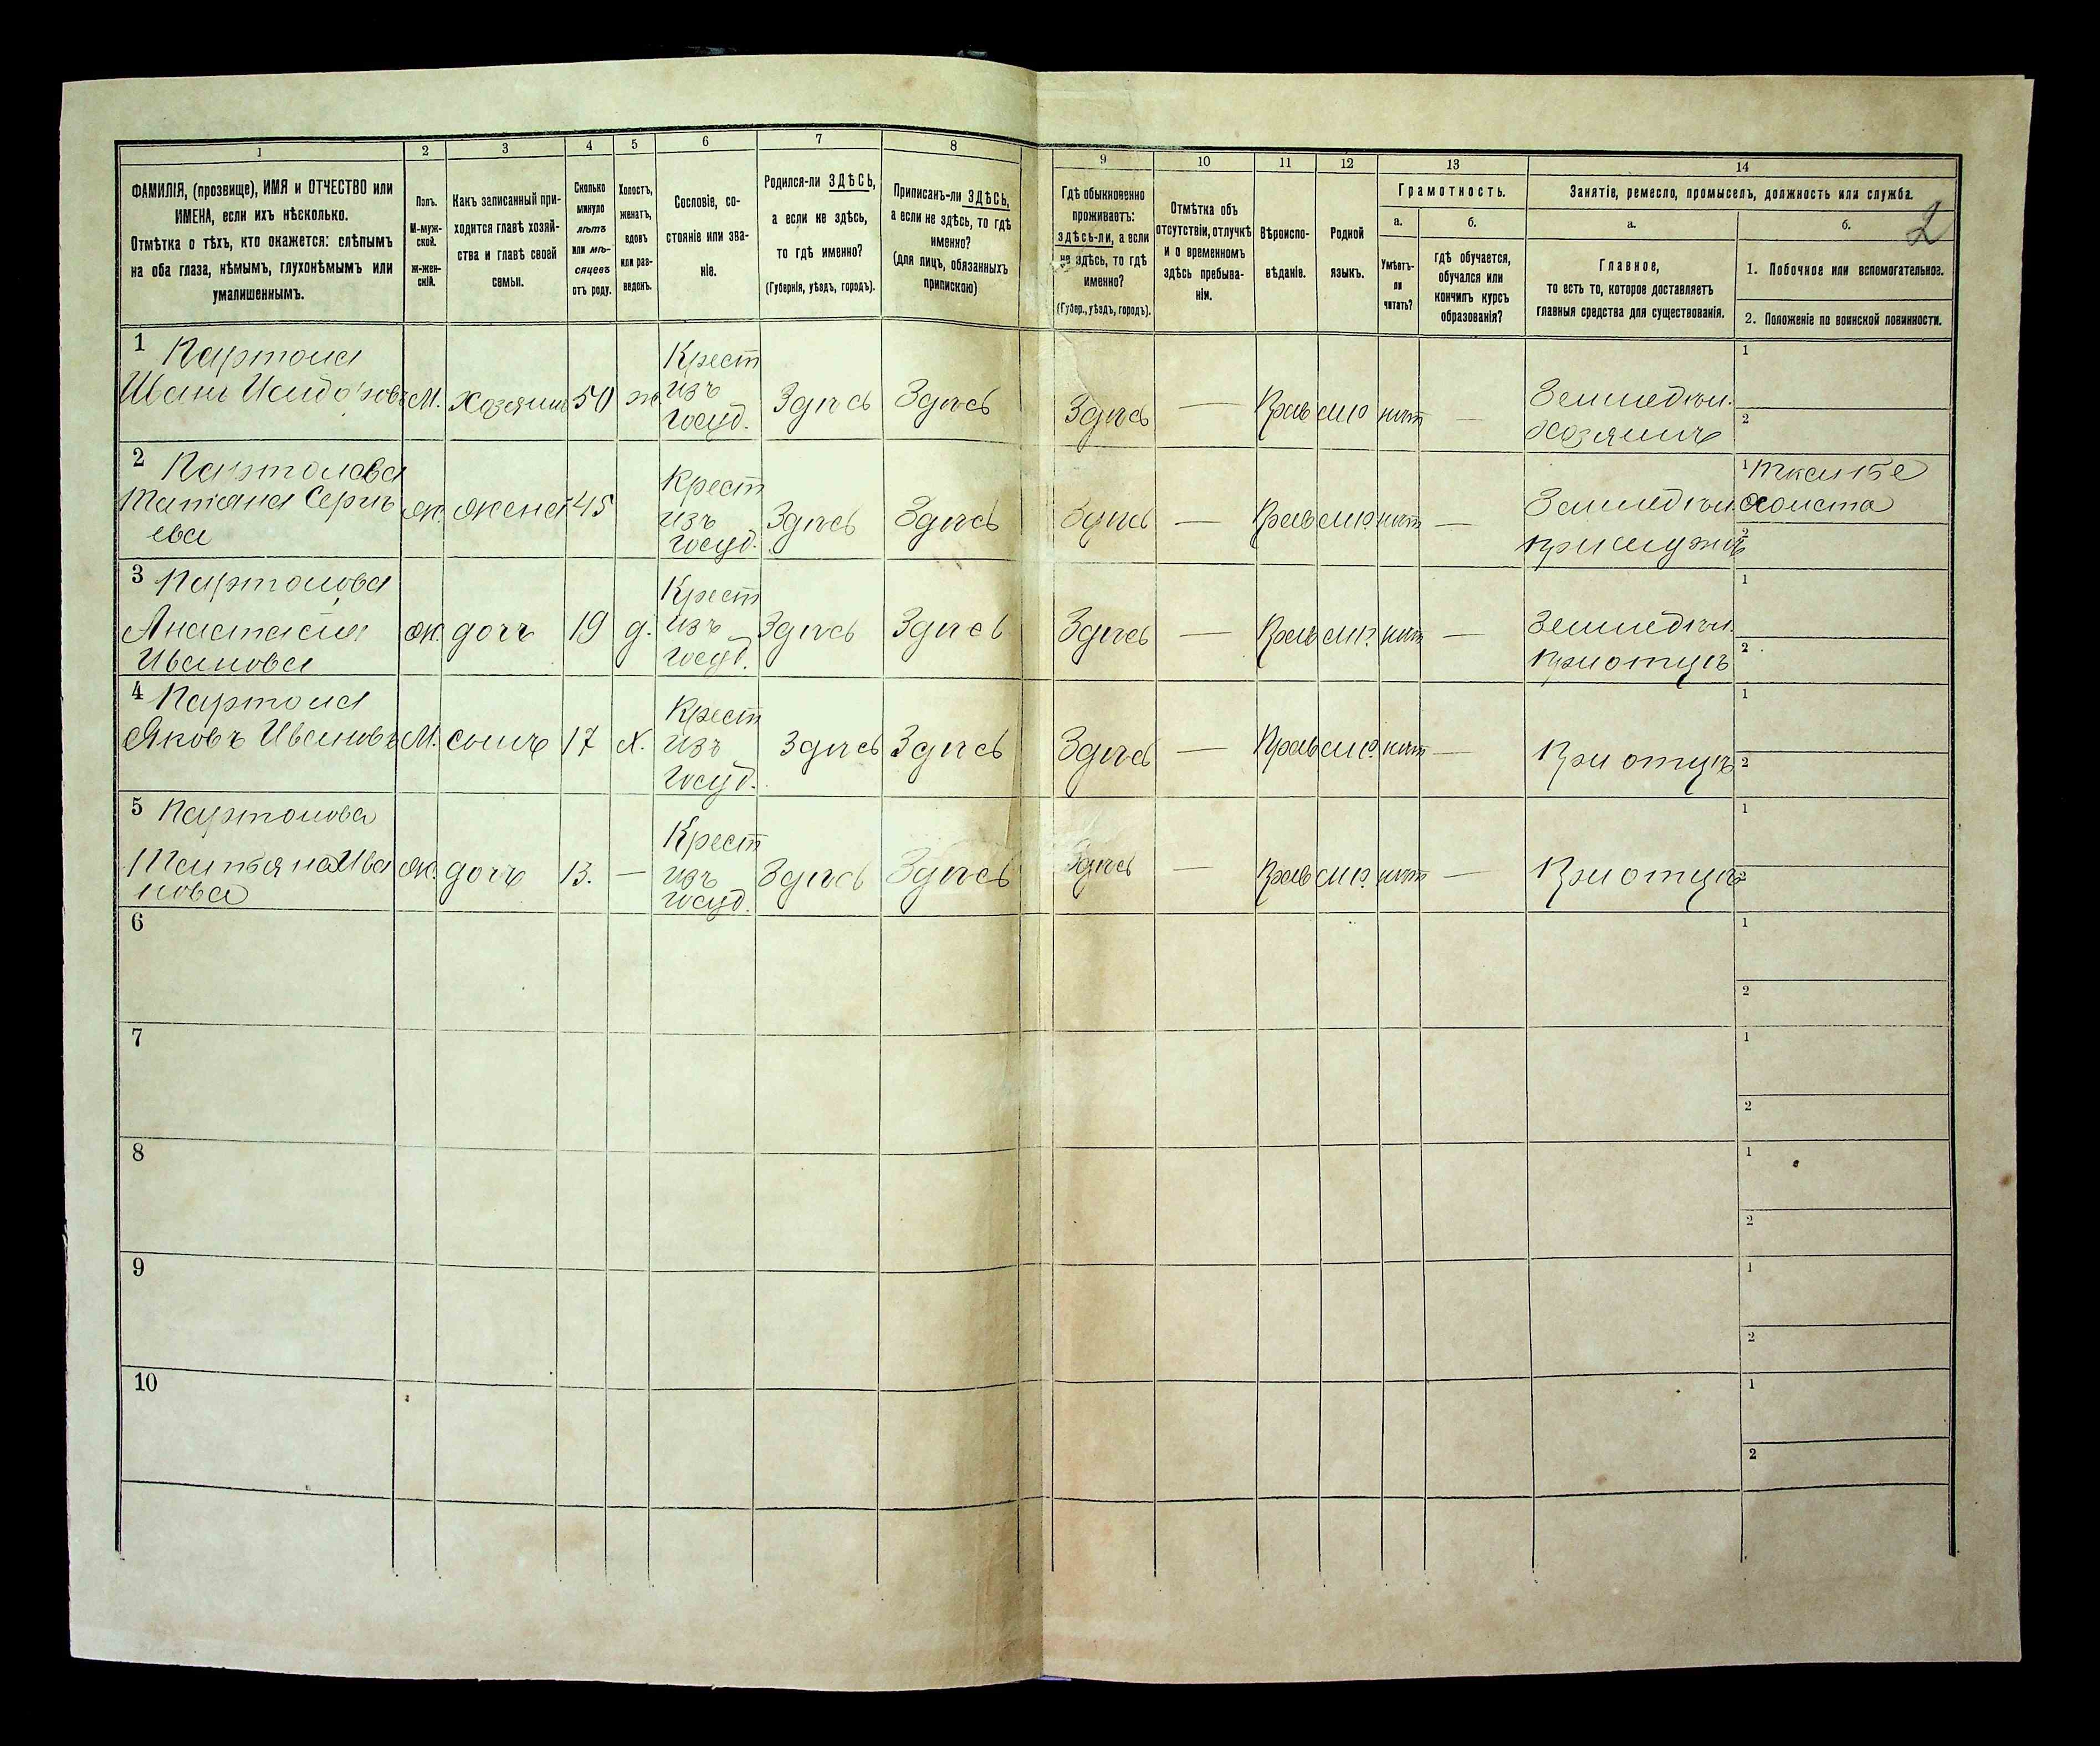 1 2 3 4 5 6 7 8 9 10 11 12 13 14
ФАМИЛІЯ, (прозвище), ИМЯ и ОТЧЕСТВО или
ИМЕНА, если ихъ нѣсколько.
Отмѣтка о тѣхъ, кто окажется: слѣпымъ
на оба глаза, нѣмымъ, глухонѣмымъ или
умалишеннымъ.
Полъ.
М-муж-
ской.
ж-жен-
скій.
Какъ записанный при-
ходится главѣ хозяй-
ства и главѣ своей
семьи.
Сколько
минуло
лѣтъ
или мѣ-
сяцевъ
отъ роду.
Холостъ,
женатъ,
вдовъ
или раз-
веденъ.
Сословіе, со-
стояніе или зва-
ніе.
Родился-ли ЗДѢСЬ,
а если не здѣсь,
то гдѣ именно?
(Губернія, уѣздъ, городъ).
Приписанъ-ли ЗДѢСЬ,
а если не здѣсь, то гдѣ
именно?
(для лицъ, обязанныхъ
припискою)
Гдѣ обыкновенно
проживаетъ:
здѣсь-ли, а если
не здѣсь, то гдѣ
именно?
(Губер., уѣздъ, городъ).
Отмѣтка объ
отсутствіи, отлучкѣ
и о временномъ
здѣсь пребыва-
ніи.
Вѣроиспо-
вѣданіе.
Родной
языкъ.
Грамотность.
а.
Умѣетъ-
ли
читать?
б.
гдѣ обучается,
обучался или
кончилъ курсъ
образованія?
Занятіе, ремесло, промыселъ, должность или служба.
а.
Главное,
то есть то, которое доставляетъ
главныя средства для существованія.
б.
2
1. Побочное или вспомогательное.
2. Положеніе по воинской повинности.
1
Иванъ Исидоровъ М. хозяинъ 50 ж. Крест изъ госуд. Здѣсь Здѣсь Здѣсь — Прав мір нѣт — Земледѣл. хозяинъ 1 2
2
Татіана Сергѣ
ева ж. жена 45 Крест изъ госуд. Здѣсь Здѣсь Здѣсь — Прав нѣт — Земледѣл. при мужѣ 1 тканье холста 2
3
Анастасія
Иванова ж. дочь 19 д. Крест изъ госуд. Здѣсь Здѣсь Здѣсь — Прав нѣт — Земледѣл. при отцѣ 1 2
4
Яковъ Ивановъ М. сынъ 17 х. Крест изъ госуд. Здѣсь Здѣсь Здѣсь — Прав нѣт — При отцѣ 1 2
5
Татьяна Ива
нова ж. дочь 13. — Крест изъ госуд. Здѣсь Здѣсь Здѣсь — Прав нѣт — При отцѣ 1 2
6 1 2
7 1 2
8 1 2
9 1 2
10 1 2